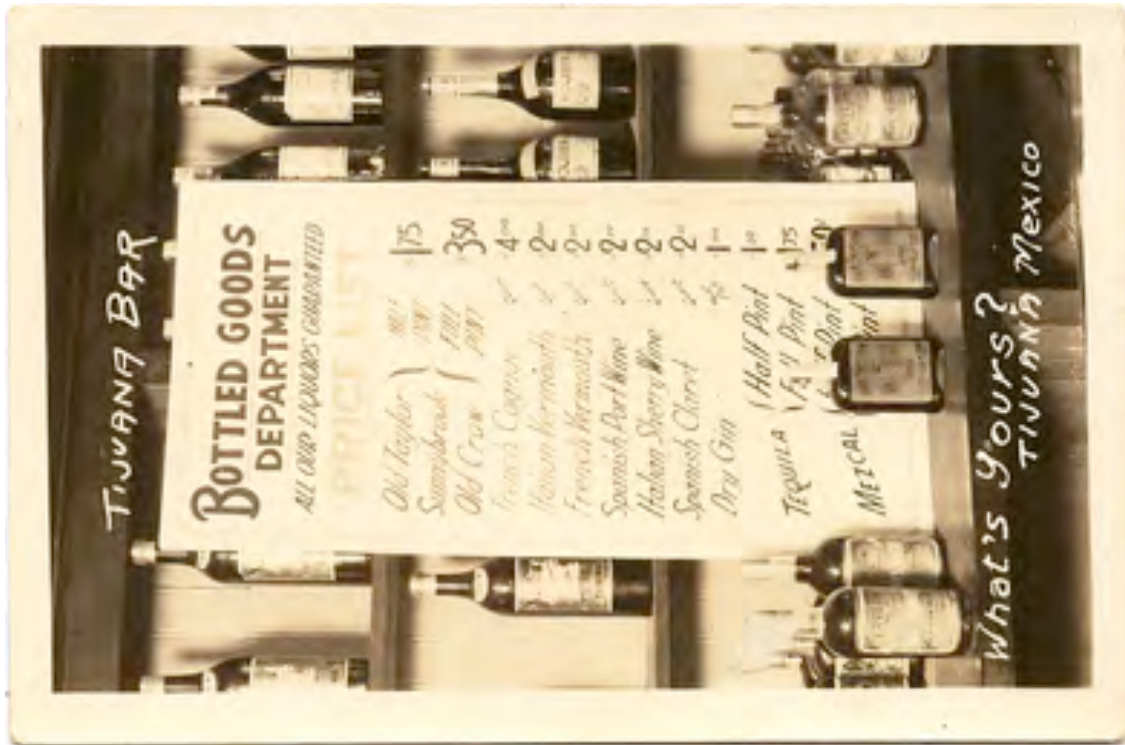 TIJUANA BAR
BOTTLED GOODS
DEPARTMENT
ALL OUR LIQUORS GUARANTEED
PRICE LIST
Old Taylor HALF PINT 175
Sunnybrook
Old Crow FULL PINT 350
French Cognac 4.00
Italian Vermouth 2.00
French Vermouth 2.00
Spanish Port Wine 2.00
Italian Sherry Wine 2.00
Spanish Claret 2.00
Dry Gin 1.00
TEQUILA Half Pint 1.00
Full Pint 175
MEZCAL Pint
What's Yours?
TIJUANA Mexico